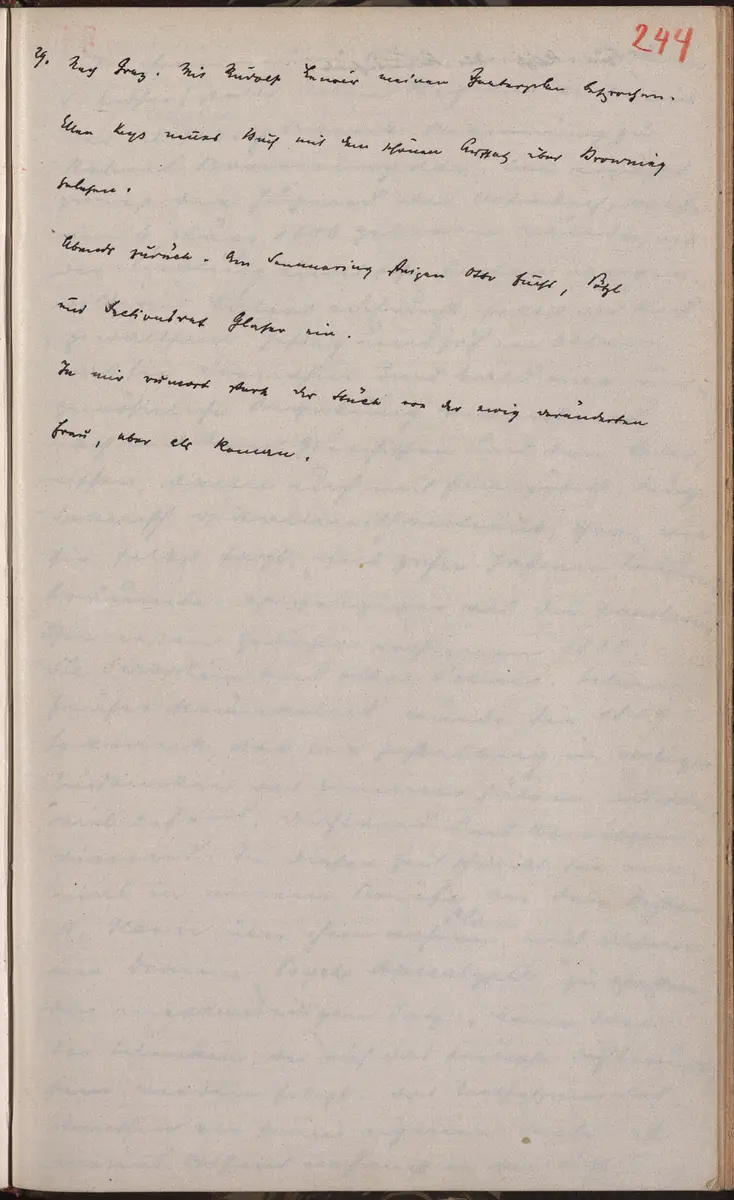 244
29. Nach Graz. Mit Rudolf Lenoir meinen Theaterplan besprochen.
Ellen Keys neues Buch mit dem schönen Aufsatz über Browning
gelesen.
Abends zurück. Am Semmering steigen Otto Fuchs, Pötzl
und Sectionsrat Glaser ein.
In mir rumort stark das Stück von der ewig veränderten
Frau, aber als Roman.